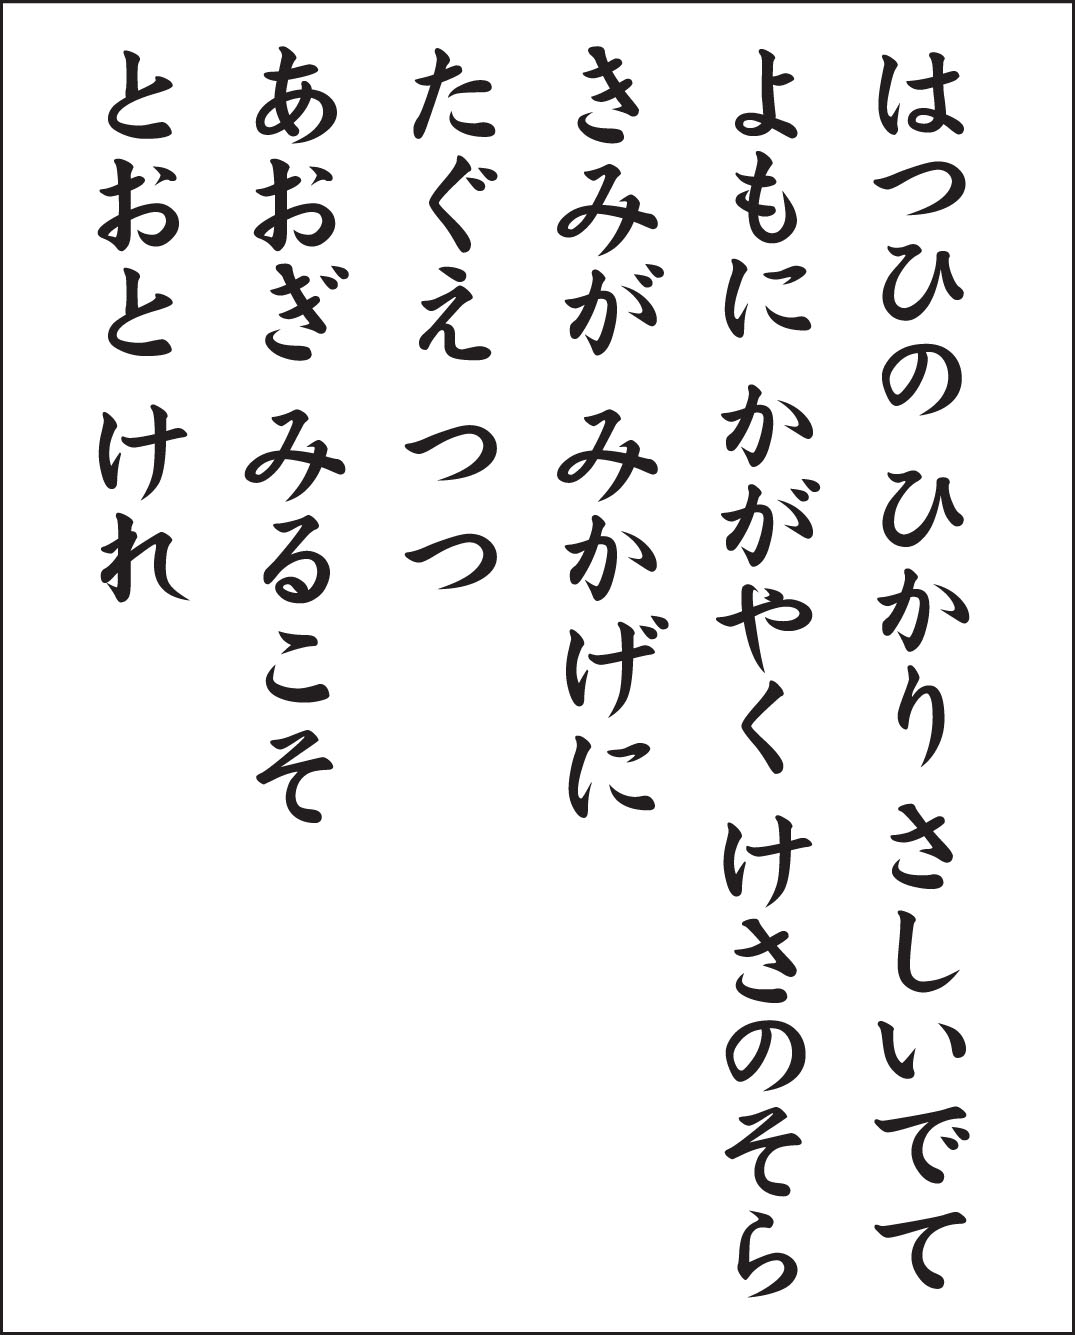 はつひの ひかり さしいでて
よもに かがやく けさのそら
きみが みかげに
たぐえ つつ
あおぎ みるこそ
とおと けれ